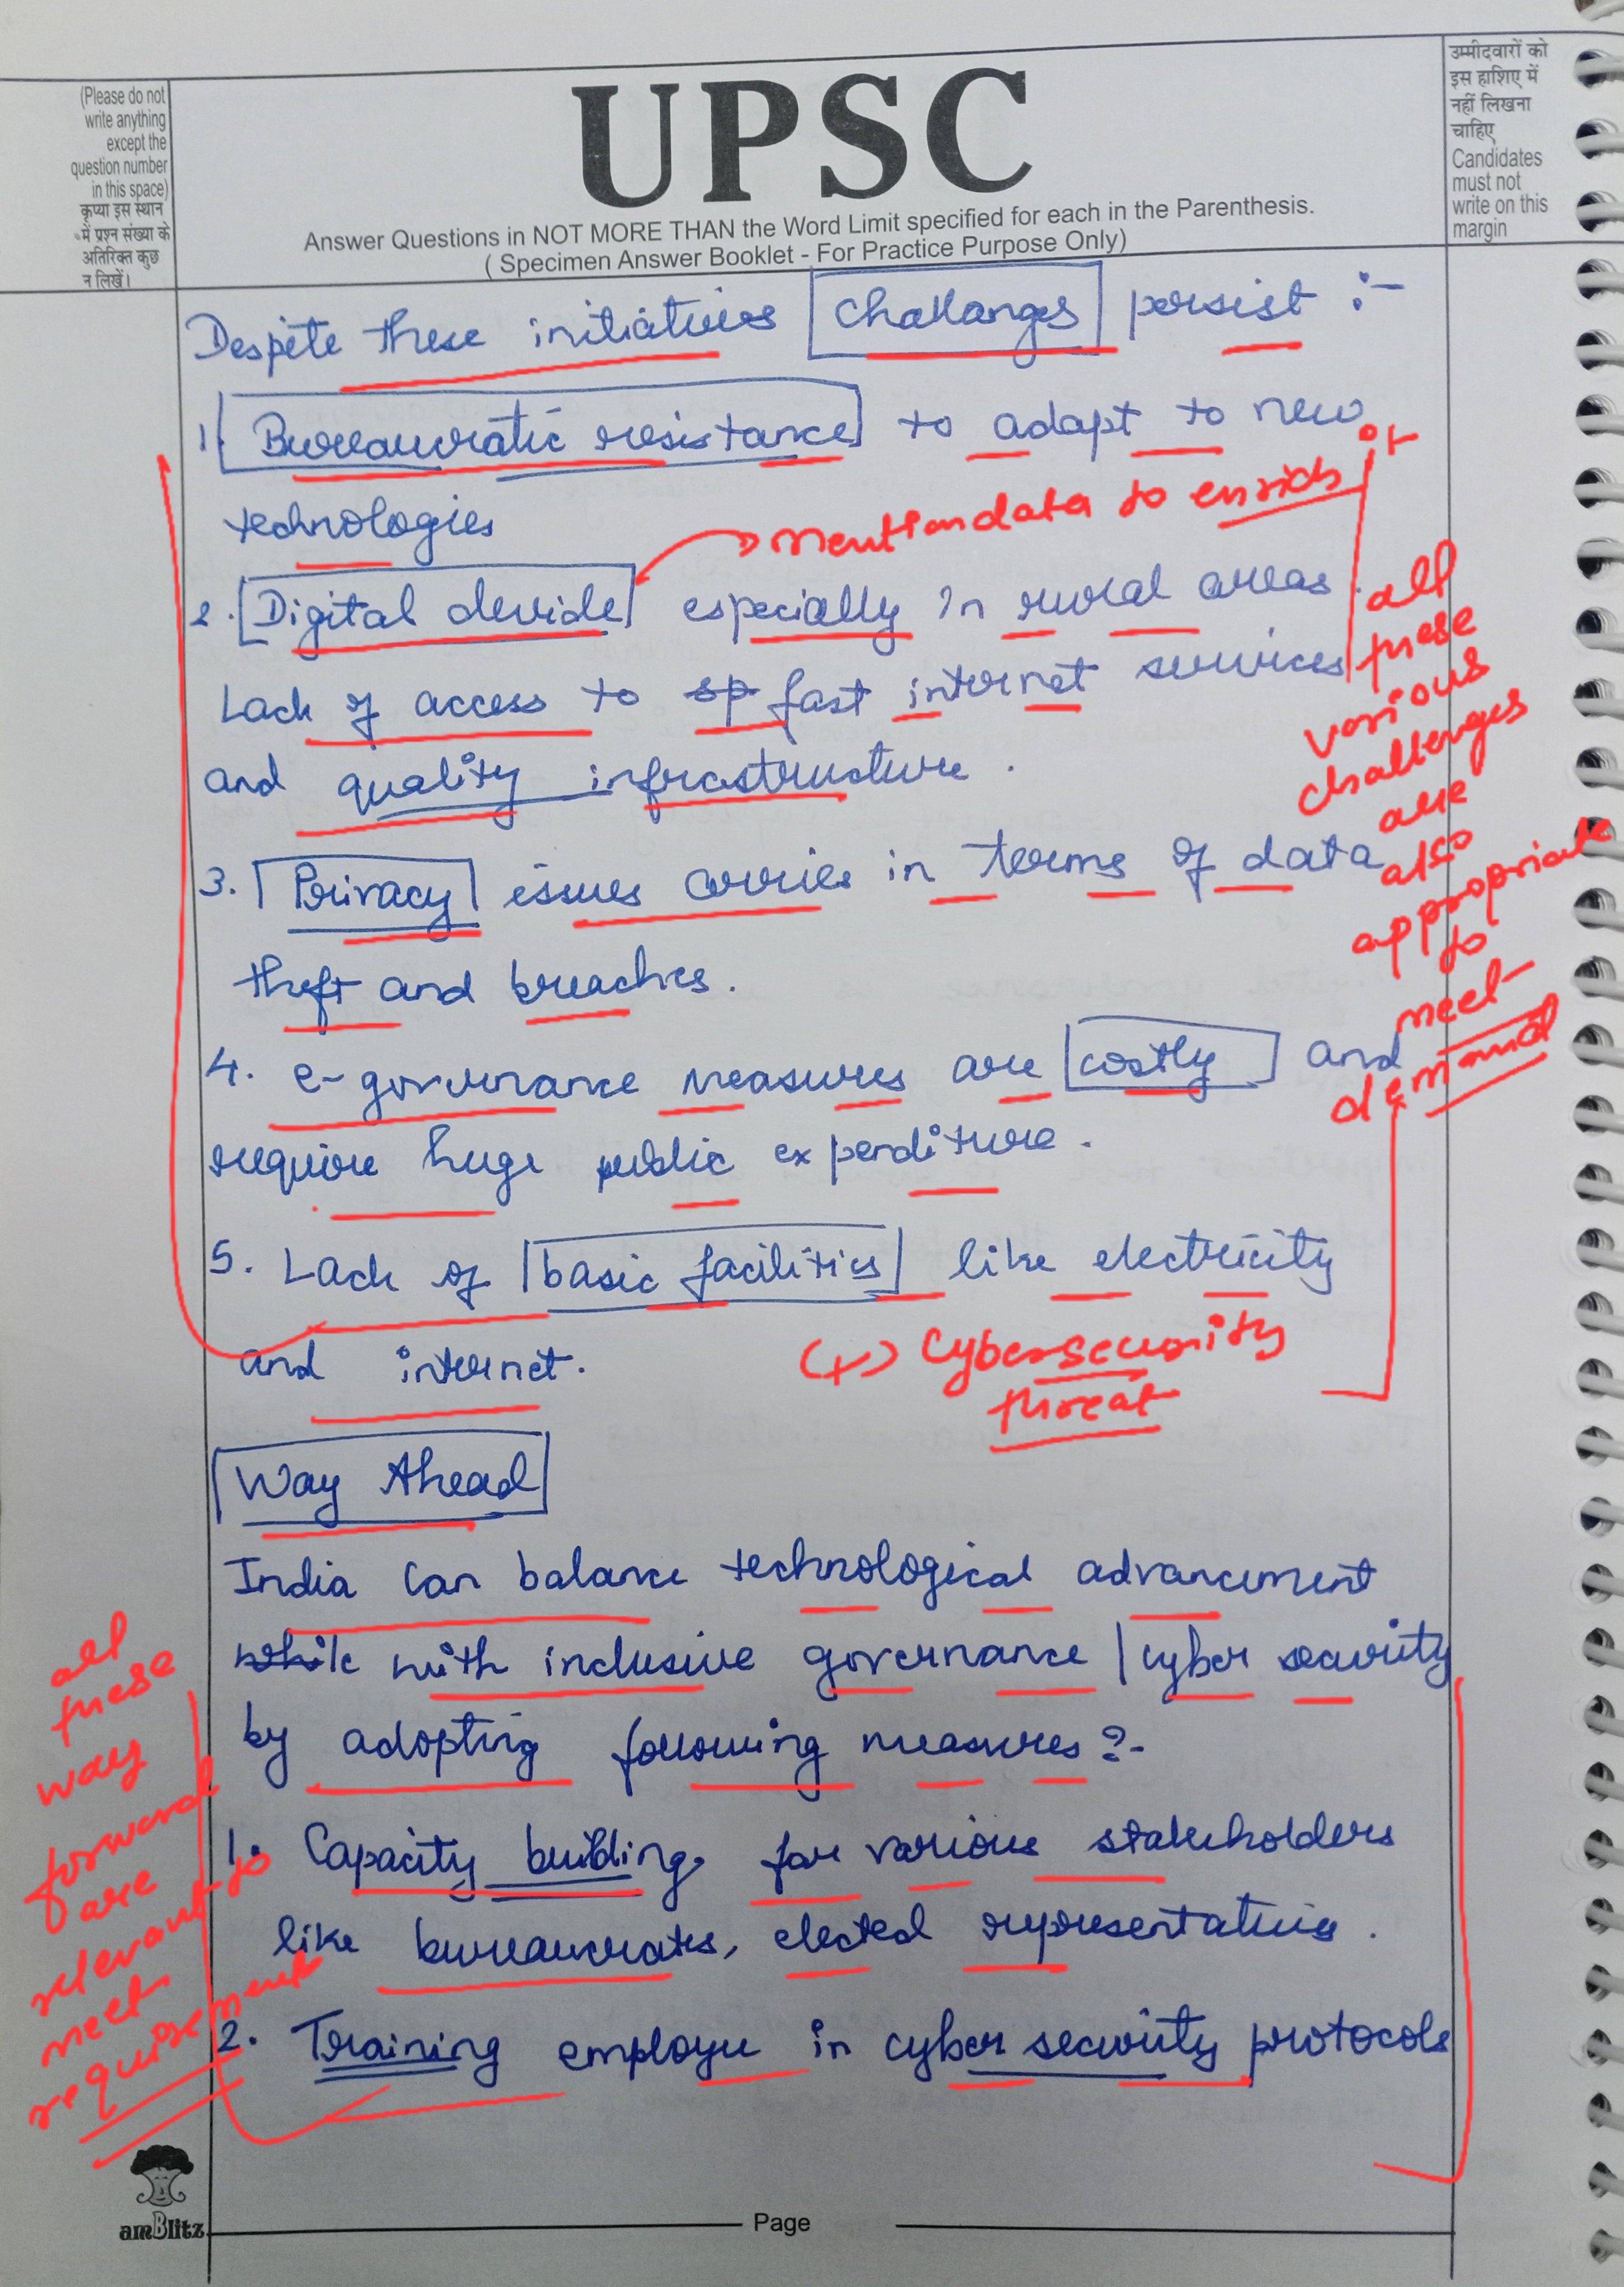 (Please do not
write anything
except the
question number
in this space)
कृप्या इस स्थान
में प्रश्न संख्या के
अतिरिक्त कुछ
न लिखें।
UPSC
Answer Questions in NOT MORE THAN the Word Limit specified for each in the Parenthesis.
( Specimen Answer Booklet - For Practice Purpose Only)
उम्मीदवारों को
इस हाशिए में
नहीं लिखना
चाहिए
Candidates
must not
write on this
margin
Despite these initiatives challanges persist :-
1. Bureaucratic resistance to adapt to new
technologies
mention data to enrich it
2. Digital devide especially in rural areas.
Lack of access to sp fast internet services
and quality infrastructure.
3. Privacy issues worries in terms of data
theft and breaches.
4. e-governance measures are costly and
require huge public expenditure.
5. Lack of basic facilities like electricity
and internet.
all
these
various
challenges
are
also
appropriate
to
meet
demand
(+) Cybersecurity
threat
Way Ahead
India can balance technological advancement
while with inclusive governance / cyber security
by adopting following measures :-
1. Capacity building for various stakeholders
like bureaucrates, elected representatives.
2. Training employee in cyber security protocols
all
these
way
forward
are
relevant to
meet
requirement
amBlitz
Page